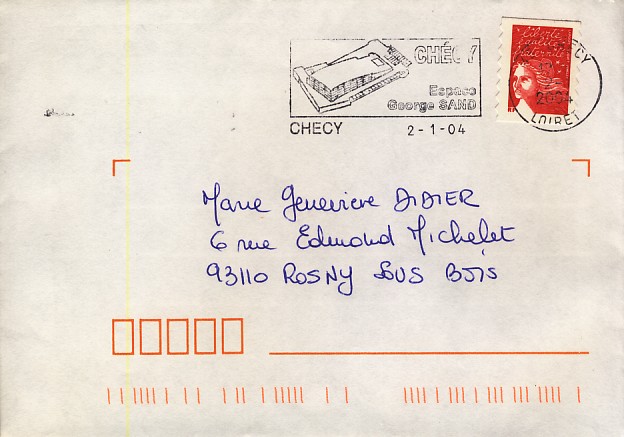 liberté
égalité
fraternité
CHÉCY
Espace
George SAND
CHECY 2-1-04
CHECY
2004
LOIRET
Marie Geneviève DIDIER
6 rue Edmond Michelet
93110 ROSNY SOUS BOIS